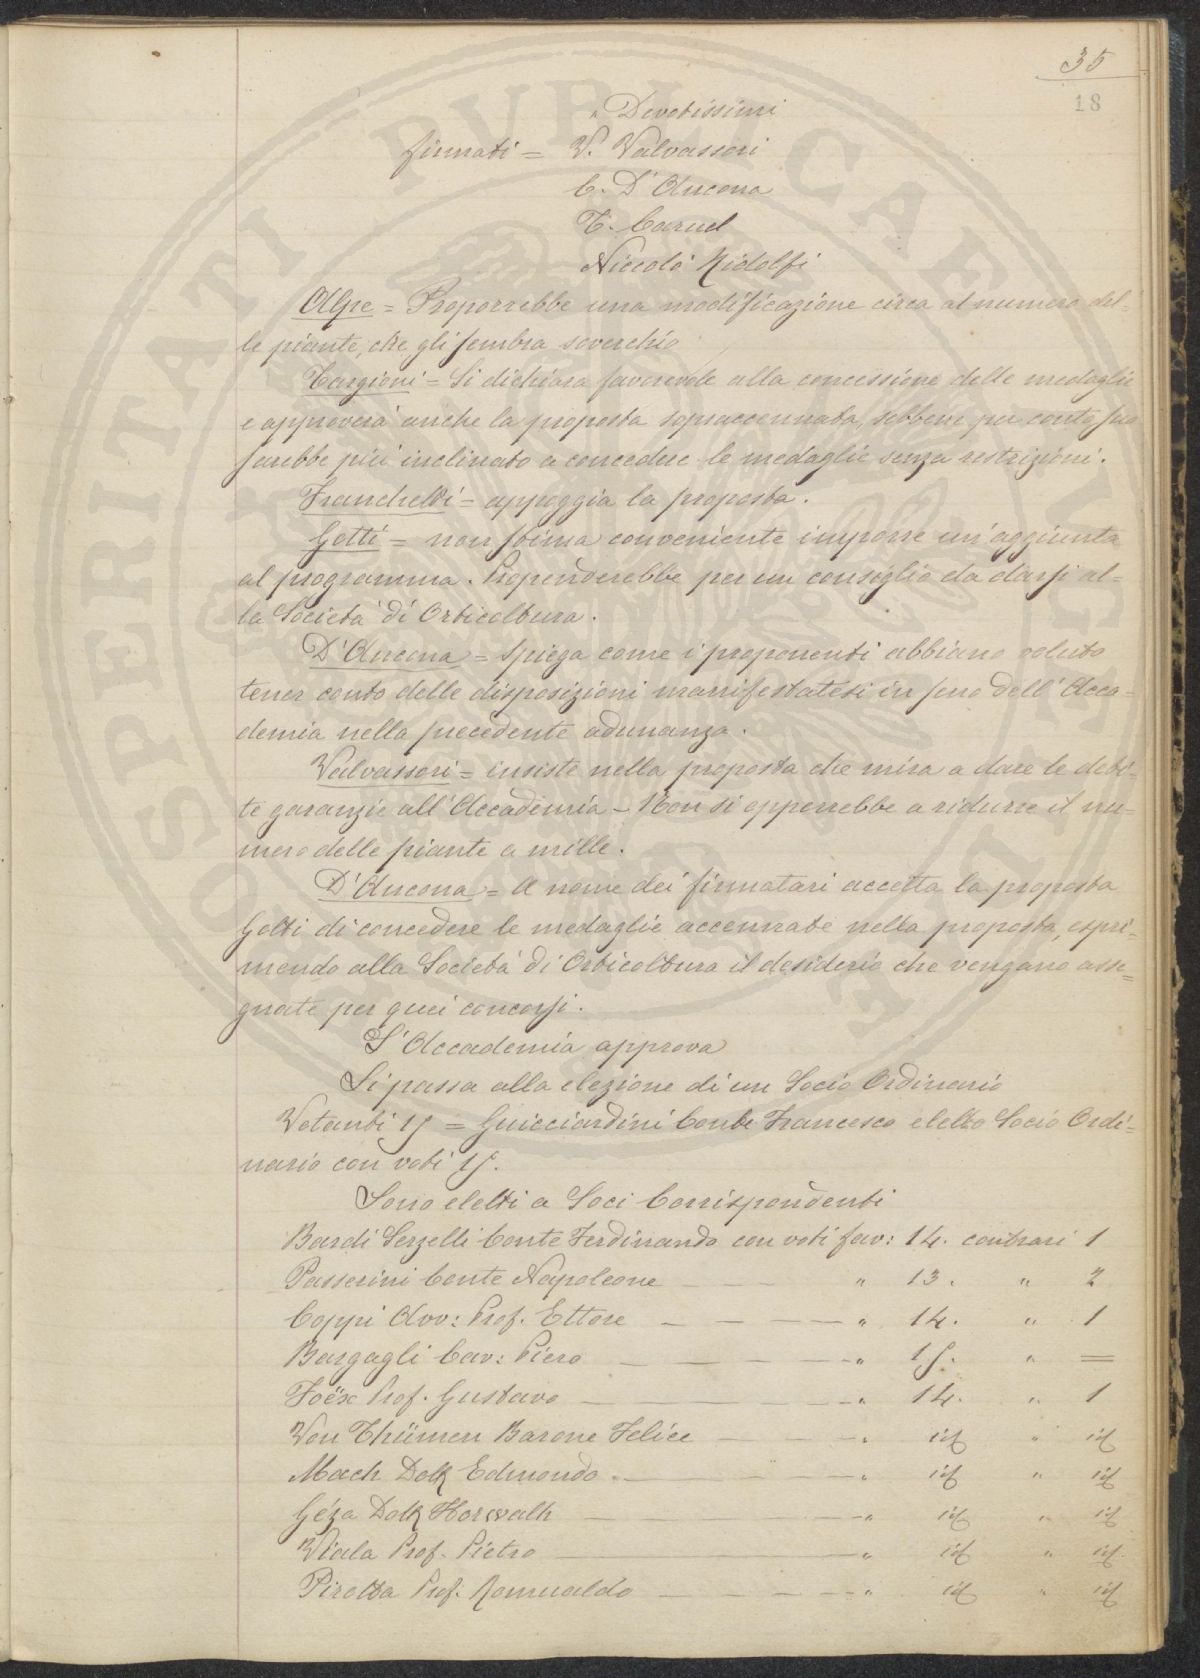 35
18
" Devotissimi
firmati = V. Valvassori
C. D'Ancona
T. Caruel
Niccolò Ridolfi
Alpe = Proporrebbe una modificazione circa al numero del=
le piante, che gli sembra soverchio
Targioni = Si dichiara favorevole alla concessione delle medaglie
e approverà anche la proposta sopraccennata, sebbene per conto suo
sarebbe più inclinato a concedere le medaglie senza restrizioni.
Franchetti = appoggia la proposta.
Gotti = non stima conveniente imporre un'aggiunta
al programma. Propenderebbe per un consiglio da darsi al=
la Società di Orticoltura.
D'Ancona = spiega come i proponenti abbiano voluto
tener conto delle disposizioni manifestatesi in seno dell'Acca=
demia nella precedente adunanza.
Valvassori = insiste nella proposta che mira a dare le debi=
te garanzie all'Accademia - Non si opporrebbe a ridurre il nu=
mero delle piante a mille.
D'Ancona = A nome dei firmatari accetta la proposta
Gotti di concedere le medaglie accennate nella proposta, espri=
mendo alla Società di Orticoltura il desiderio che vengano asse=
gnate per quei concorsi.
L'Accademia approva
Si passa alla elezione di un Socio Ordinario
Votanti 15 = Guicciardini Conte Francesco eletto Socio Ordi=
nario con voti 15.
Sono eletti a Soci Corrispondenti
Bardi Serzelli Conte Ferdinando con voti fav: 14. contrari 1
Passerini Conte Napoleone — — — " 13. " 2
Coppi Avv: Prof. Ettore — — — — — " 14. " 1
Bargagli Cav: Piero — — — — — " 15. " =
Foëx Prof. Gustavo — — — — — " 14. " 1
Von Thümen Barone Felice — — — — " id " id
Mach Dott Edmondo. — — — — " id " id
Géza Dott Horwath — — — — " id " id
Viala Prof. Pietro — — — — " id " id.
Pirotta Prof. Romualdo — — — — " id " id
SPERITATI PVBLICAE